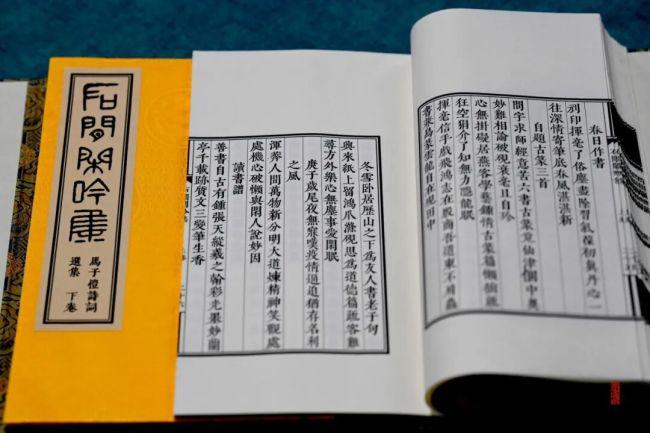 春日作書
列印揮毫了俗塵盡除習氣葆初真丹心一
往深情寄筆底春風湛湛新
自題古篆三首
問字求師經意苦六書古篆竟仙津個中奧
妙難相論破硯衰毫口自吟
心無掛礙居燕客學藝鍾情古篆篇懶
狂空狷介了知無力憑龍眠
揮毫信手戲飛鴻志在殷商吾道東不屑蟲
書兼鳥篆雲龍自在硯田中
冬雪卧居歷山之下為友人書老子句
興來紙上留鴻爪滌硯思為道德篇疏客難
尋方外樂心無塵事愛閑眠
庚子歲尾夜無寐嘆疫情過迫猶存名利
之風
渾莽人間萬物新分明大道煉精神笑觀處
處機心破懶與閑人說妙因
讀書譜
善書自古有鍾張天縱羲之翰彩光果妙蘭
亭千載跡質文三變筆生香
石閒閑吟
馬子愷詩詞
選集 下卷